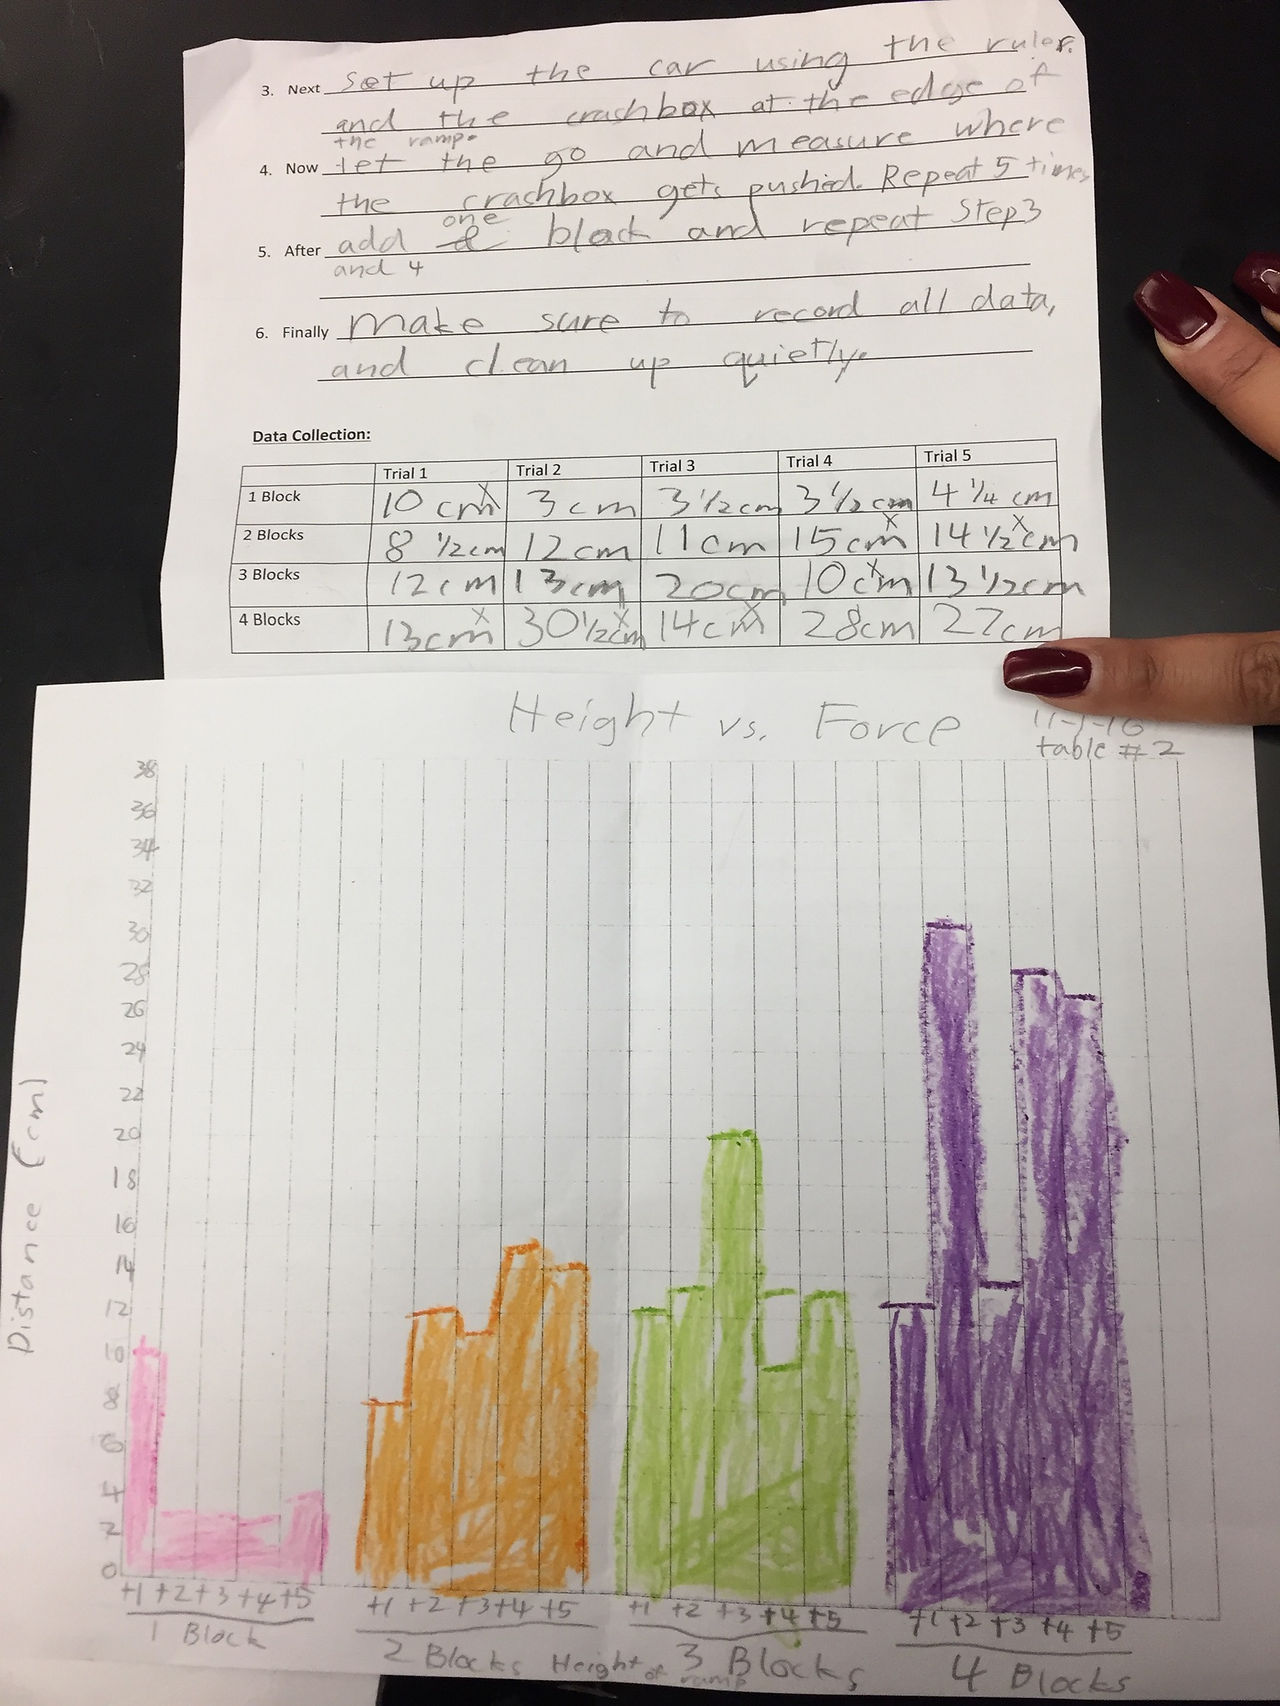 3. Next set up the car using the ruler.
and the crashbox at the edge of
the ramp.
4. Now let the go and measure where
the crashbox gets pushed. Repeat 5 times
one
5. After add block and repeat Step 3
and 4
6. Finally make sure to record all data,
and clean up quietly.
Data Collection:
Trial 1 Trial 2 Trial 3 Trial 4 Trial 5
1 Block 10 cm x 3 cm 3 1/2 cm 3 1/2 cm 4 1/4 cm
2 Blocks 8 1/2 cm 12 cm 11 cm 15 cm x 14 1/2 cm x
3 Blocks 12 cm 13 cm 20 cm 10 cm x 13 1/2 cm
4 Blocks 13 cm x 30 1/2 cm x 14 cm x 28 cm 27 cm
Height vs. Force
table # 2
38
36
34
32
30
28
26
24
22
20
18
16
14
12
10
8
6
4
2
0
Distance (cm)
+1 +2 +3 +4 +5 +1 +2 +3 +4 +5 +1 +2 +3 +4 +5 +1 +2 +3 +4 +5
1 Block 2 Blocks 3 Blocks 4 Blocks
Height of ramp